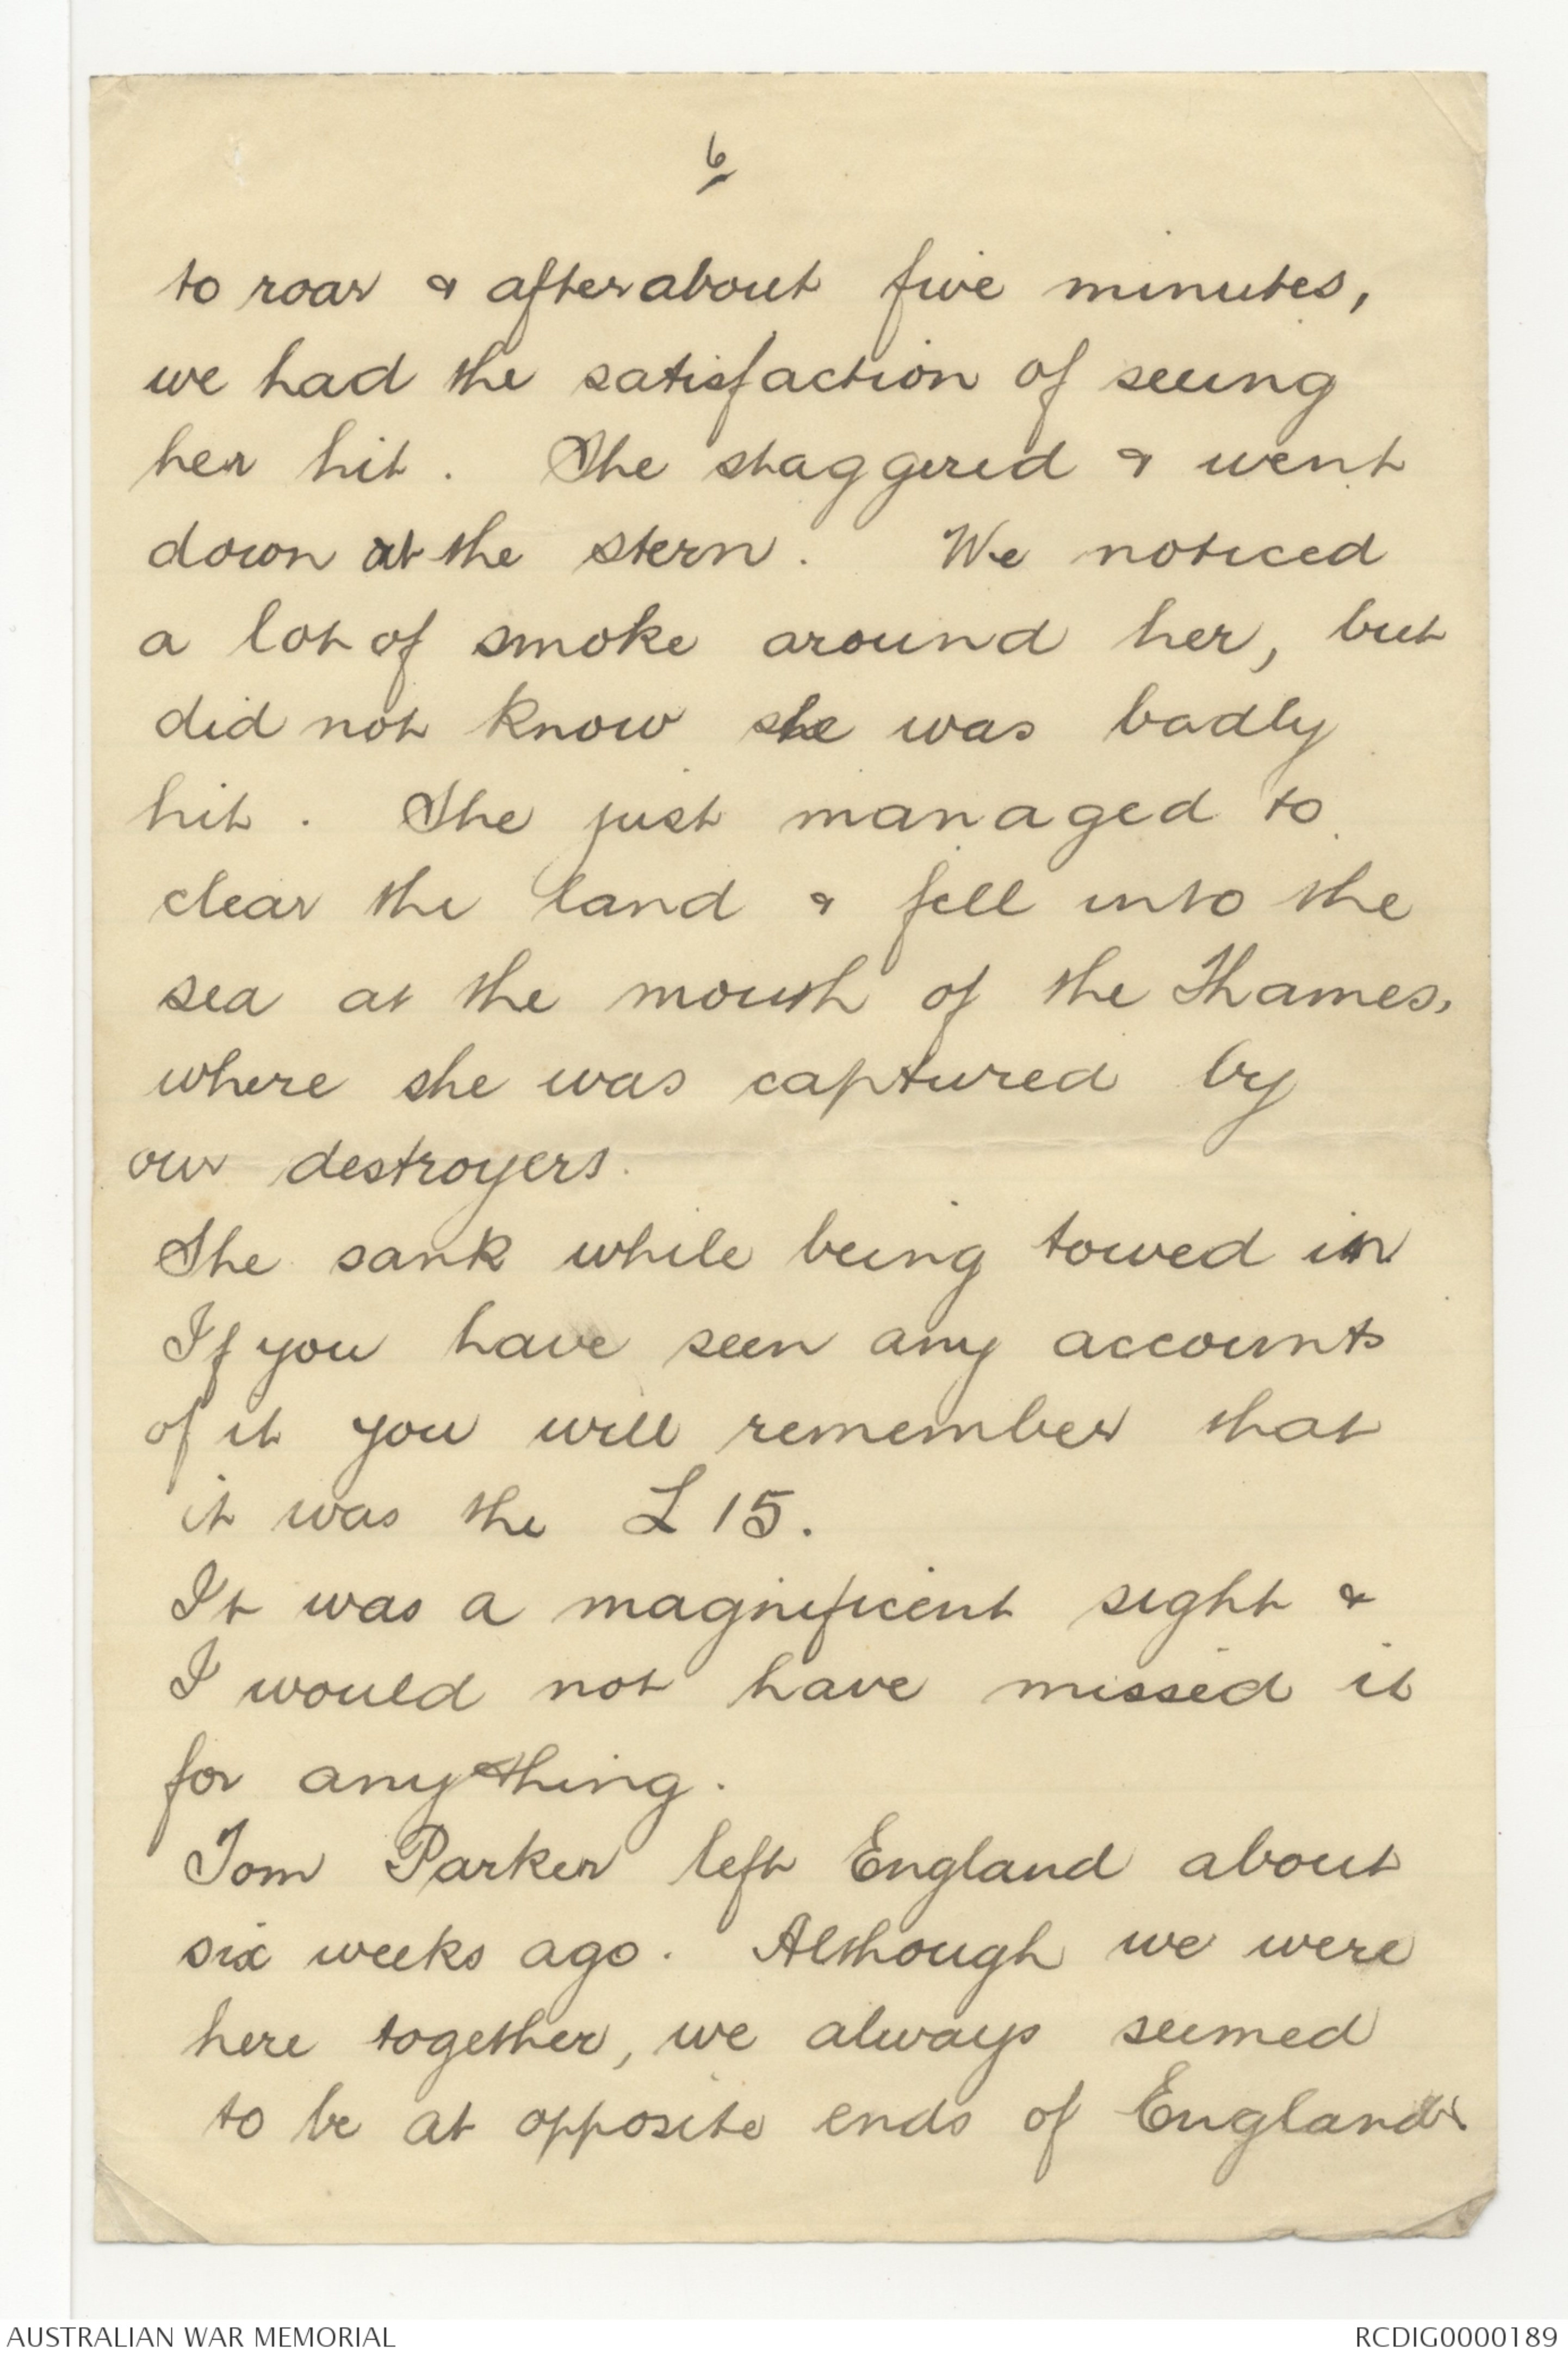 6
to roar & after about five minutes,
we had the satisfaction of seeing
her hit. She staggered & went
down at the stern. We noticed
a lot of smoke around her, but
did not know she was badly
hit. She just managed to
clear the land & fell into the
sea at the mouth of the Thames,
where she was captured by
our destroyers.
She sank while being towed in
If you have seen any accounts
of it you will remember that
it was the L 15.
It was a magnificent sight &
I would not have missed it
for anything.
Tom Parker left England about
six weeks ago. Although we were
here together, we always seemed
to be at opposite ends of England
AUSTRALIAN WAR MEMORIAL
RCDIG0000189